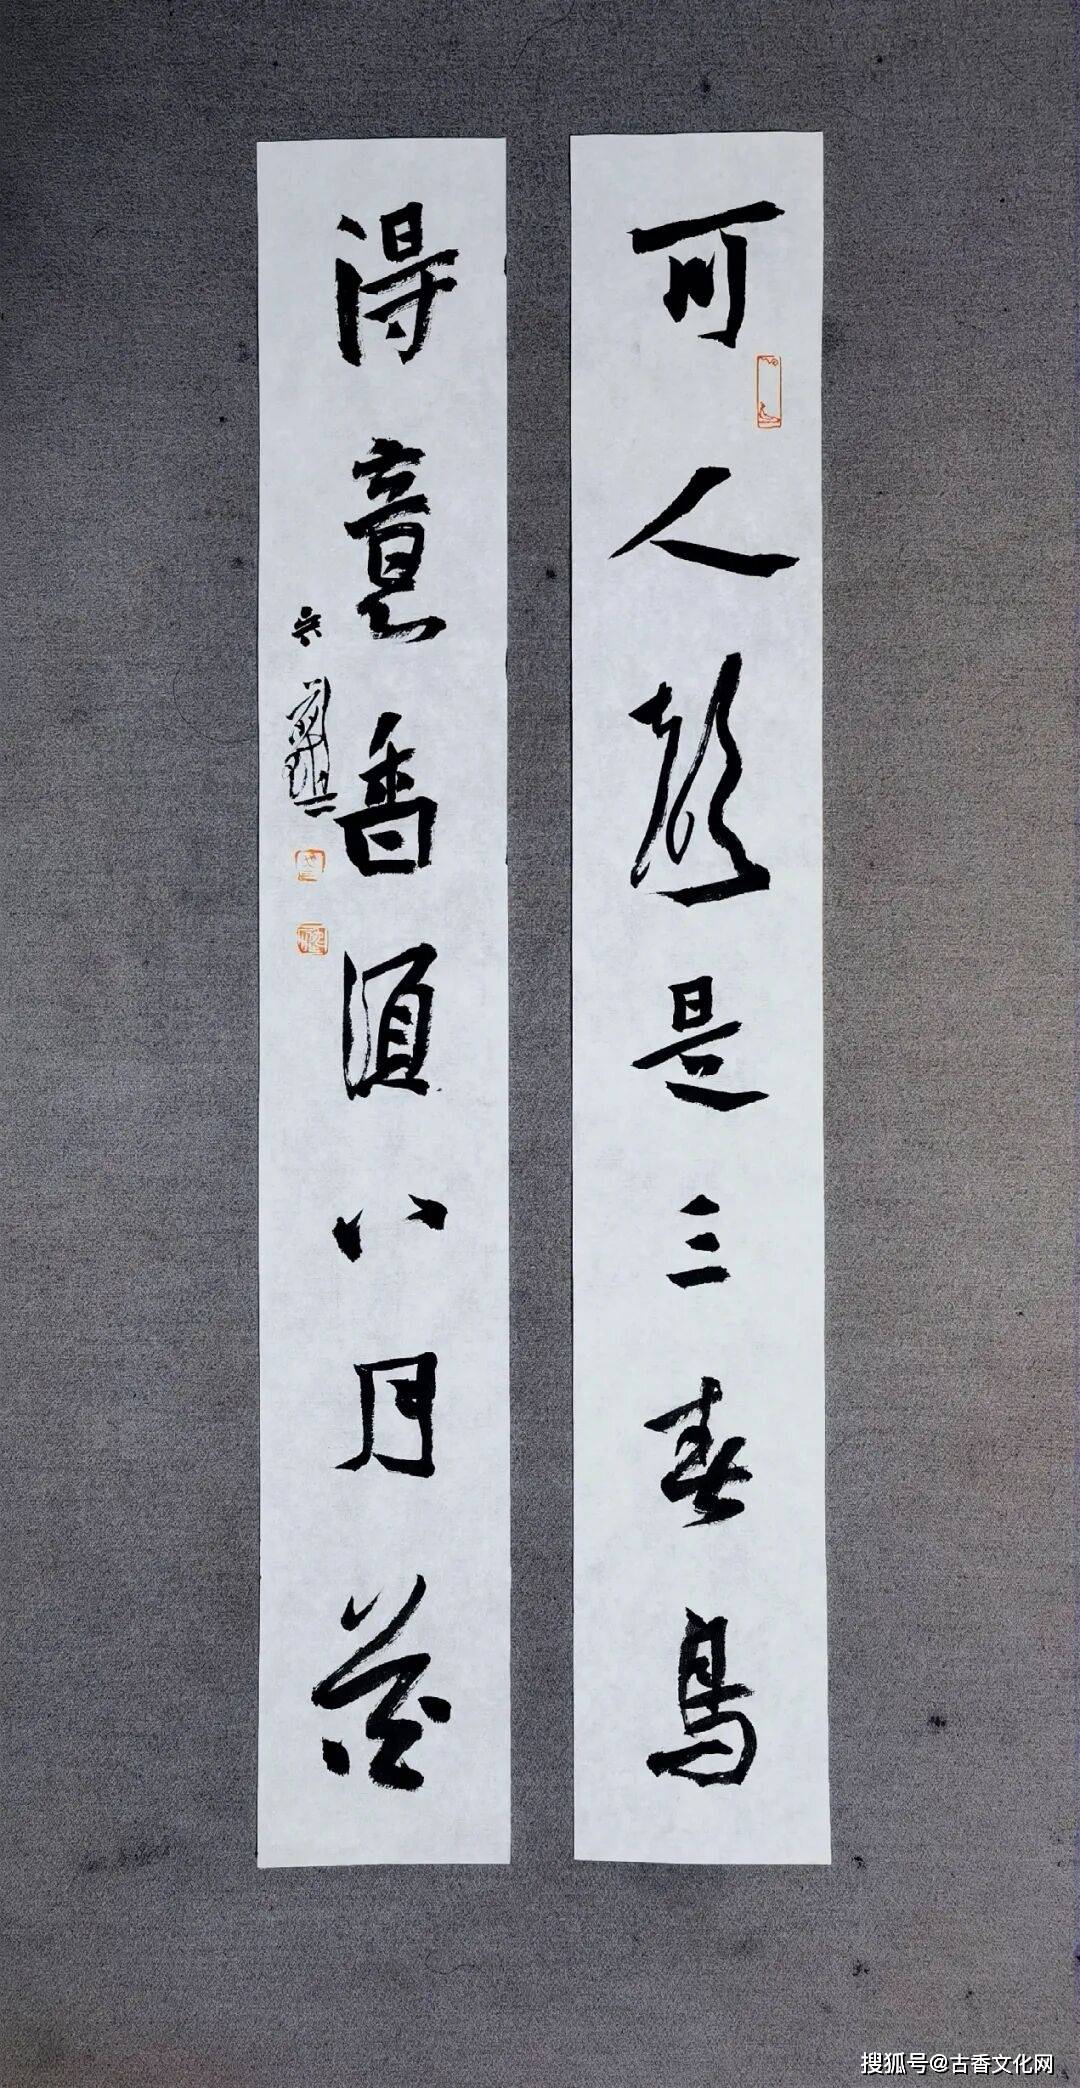 可人聲是三春鳥
得意香須八月花
搜狐号@古香文化网